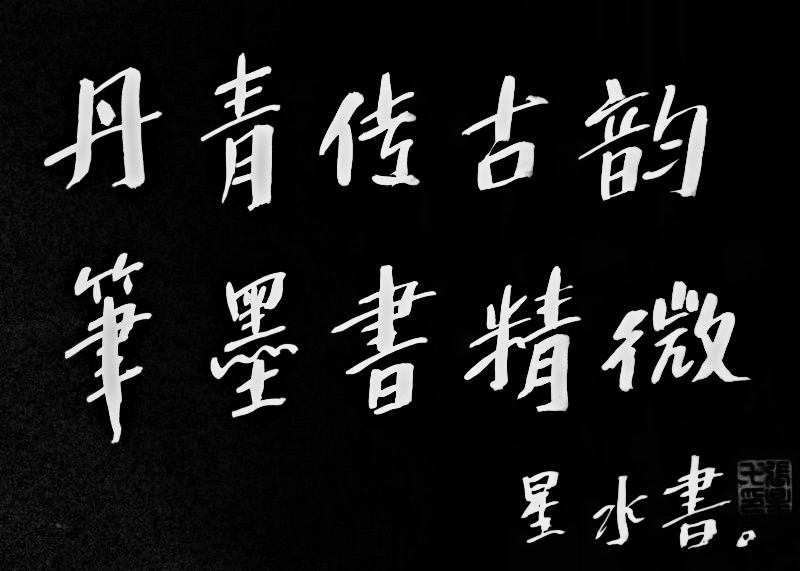 丹青传古韵
筆墨書精微
星水書。